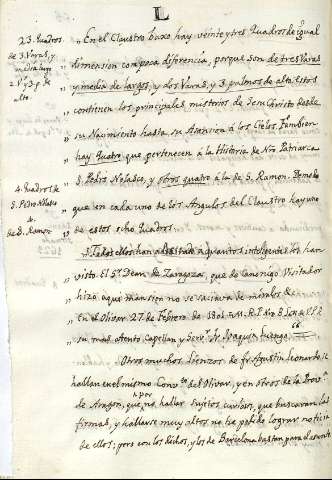 L
23. Quadros
de 3. Varas, y
media larg.
2. Vs y 3. p. de
alto.
„ En el Claustro baxo hay veinte y tres Quadros de igual
„ dimension con poca diferencia, porque son de tres Varas
„ y media de largos, y dos Varas, y 3. palmos de alto. Estos
„ contienen los principales misterios de Jem Christo desde
„ su Nacimiento hasta su Asension á los Cielos. Tambien
„ hay Quatro que pertenecen á la Historia de Nro Patriarca
4. Quadros de
S. Pedro Nolasco
4.
de S. Ramon.
„ S. Pedro Nolasco, y otros quatro á la de S. Ramon.
„ que en cada uno de los Angulos del Claustro hay uno
„ de estos ocho Quadros.
„ Todos ellos han a quantos inteligentes los han
„ visto. El Sr. Dean de Zaragoza, que de Canonigo Visitador
„ hizo aqui mansion no se saciava de mirarlos &
„ En el Olivar 27 de Febrero de 1801.
„ su mas atento Capellan y Servr. Fr. Joaquin
Otros muchos Lienzos de fr. Agustin Leonardo se
hallan en el mismo Convto. del Olivar, y en otros de la Prova.
de Aragon, que por no hallar sujetos curiosos, que buscaran las
firmas, y hallarse muy altos no ha podido lograr noticia
de ellos; pero con los dichos, y los de Barcelona bastan para el